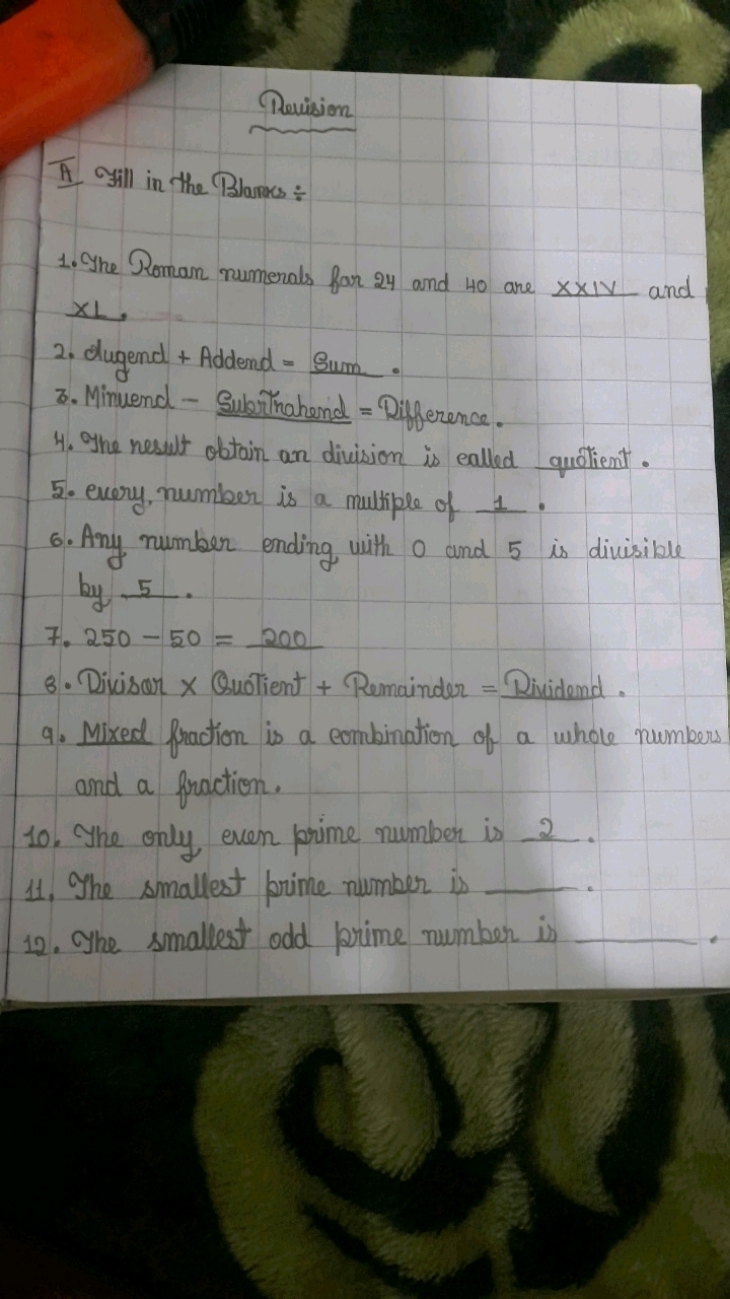 Revision
A Fill in the Blanks ÷
1. The Roman numerals for 24 and 40 are XXIV and
XL.
2. Augend + Addend = Sum.
3. Minuend - Subrtrahend = Difference.
4. The result obtain an division is called quotient.
5. every number is a multiple of 1.
6. Any number ending with 0 and 5 is divisible
by 5.
7. 250 - 50 = 200
8. Divisor × Quotient + Remainder = Dividend.
9. Mixed fraction is a combination of a whole numbers
and a fraction.
10. The only even prime number is 2.
11. The smallest prime number is ______.
12. The smallest odd prime number is ______.